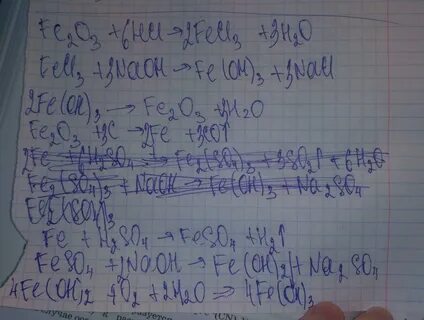 Fe₂O₃ + 6HCl → 2FeCl₃ + 3H₂O
FeCl₃ + 3NaOH → Fe(OH)₃ + 3NaCl
2Fe(OH)₃ → Fe₂O₃ + 3H₂O
Fe₂O₃ + 3C → 2Fe + 3CO↑
2Fe + 6H₂SO₄ → Fe₂(SO₄)₃ + 3SO₂↑ + 6H₂O
Fe₂(SO₄)₃ + NaOH → Fe(OH)₃ + Na₂SO₄
Fe + H₂SO₄ → FeSO₄ + H₂↑
FeSO₄ + 2NaOH → Fe(OH)₂ + Na₂SO₄
4Fe(OH)₂ + O₂ + 2H₂O ⇒ 4Fe(OH)₃